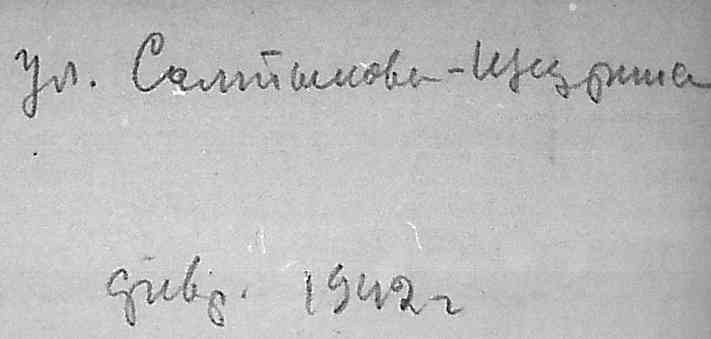 Ул. Салтыкова-Щедрина
янвр. 1942 г